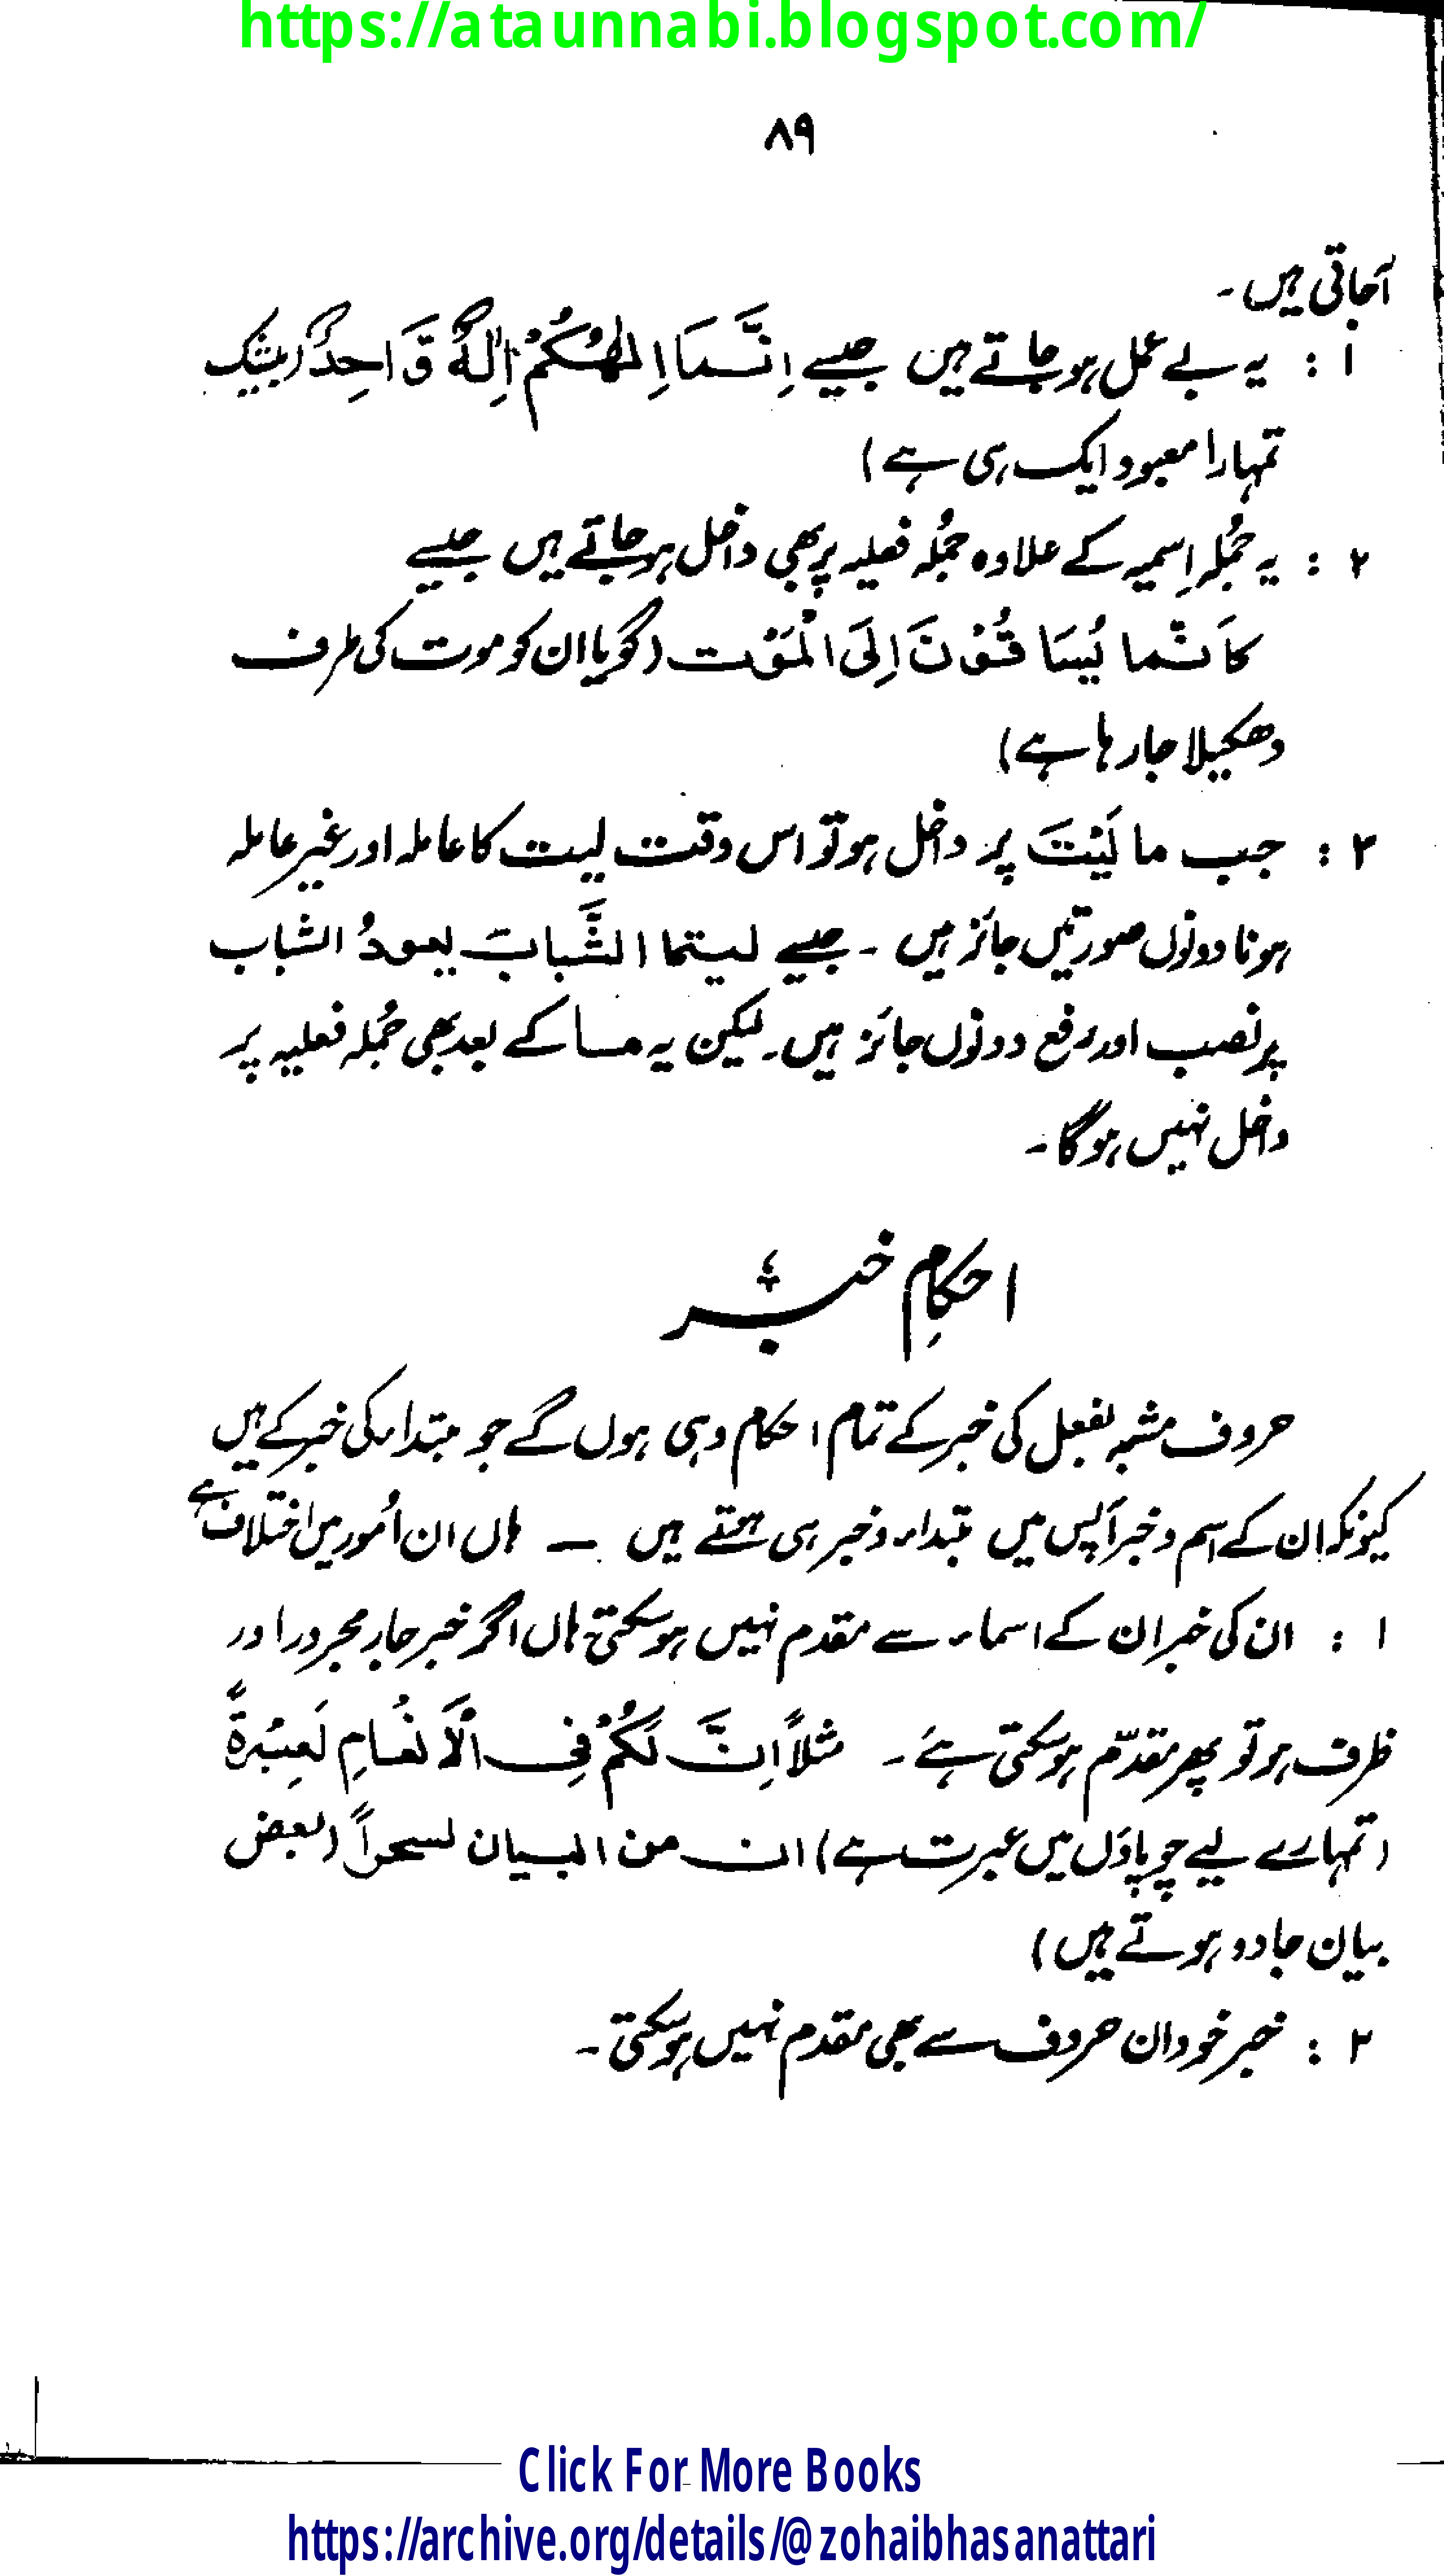 https://ataunnabi.blogspot.com/
۸۹
آجاتی ہیں ۔
۱ : یہ بے عمل ہو جاتے ہیں جیسے اِنَّمَا اِلٰهُكُمْ اِلٰهٌ وَّاحِدٌ (بیشک
تمہارا معبود ایک ہی ہے)
۲ : یہ جُملہ اِسمیہ کے علاوہ جُملہ فعلیہ پر بھی داخل ہو جاتے ہیں جیسے
كَاَنَّما يُسَاقُوْنَ اِلَى الْمَوْت (گویا ان کو موت کی طرف
دھکیلا جا رہا ہے)
۳ : جب ما لَیْتَ پر داخل ہو تو اس وقت لیت کا عاملہ اور غیر عاملہ
ہونا دونوں صورتیں جائز ہیں ۔ جیسے لیتما الشَّبابَ یعودُ الشباب
پر نصب اور رفع دونوں جائز ہیں۔ لیکن یہ مــا کے بعد بھی جُملہ فعلیہ پر
داخل نہیں ہوگا ۔
احکامِ خبر
حروف مشبہ بفعل کی خبر کے تمام احکام وہی ہوں گے جو مبتداء کی خبر کے ہیں
کیونکہ ان کے اسم و خبر آپس میں مبتداء و خبر ہی ہوتے ہیں ــ ہاں ان اُمور میں اختلاف ہے
۱ : ان کی خبر ان کے اسماء سے مقدم نہیں ہو سکتی ہاں اگر خبر جار مجرور اور
ظرف ہو تو پھر مقدّم ہو سکتی ہے ۔ مثلاً اِنَّ لَكُمْ فِى الْاَنْعَامِ لَعِبْرَةً
(تمہارے لیے چوپاؤں میں عبرت ہے) ان من البيان لسحراً (بعض
بیان جادو ہوتے ہیں)
۲ : خبر خود ان حروف سے بھی مقدم نہیں ہو سکتی ۔
Click For More Books
https://archive.org/details/@zohaibhasanattari